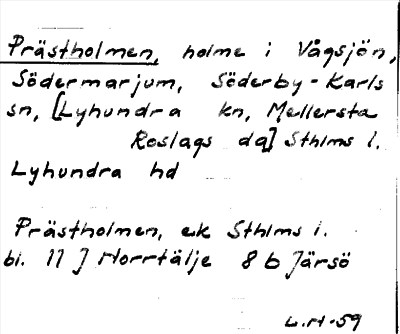 Prästholmen, holme i Vågsjön,
Södermarjum, Söderby-Karls
sn, [Lyhundra kn, Mellersta
Roslags da] Sthlms l.
Lyhundra hd
Prästholmen, ek Sthlms l.
bl. 11 J Norrtälje 8 b Järsö
L.H-59